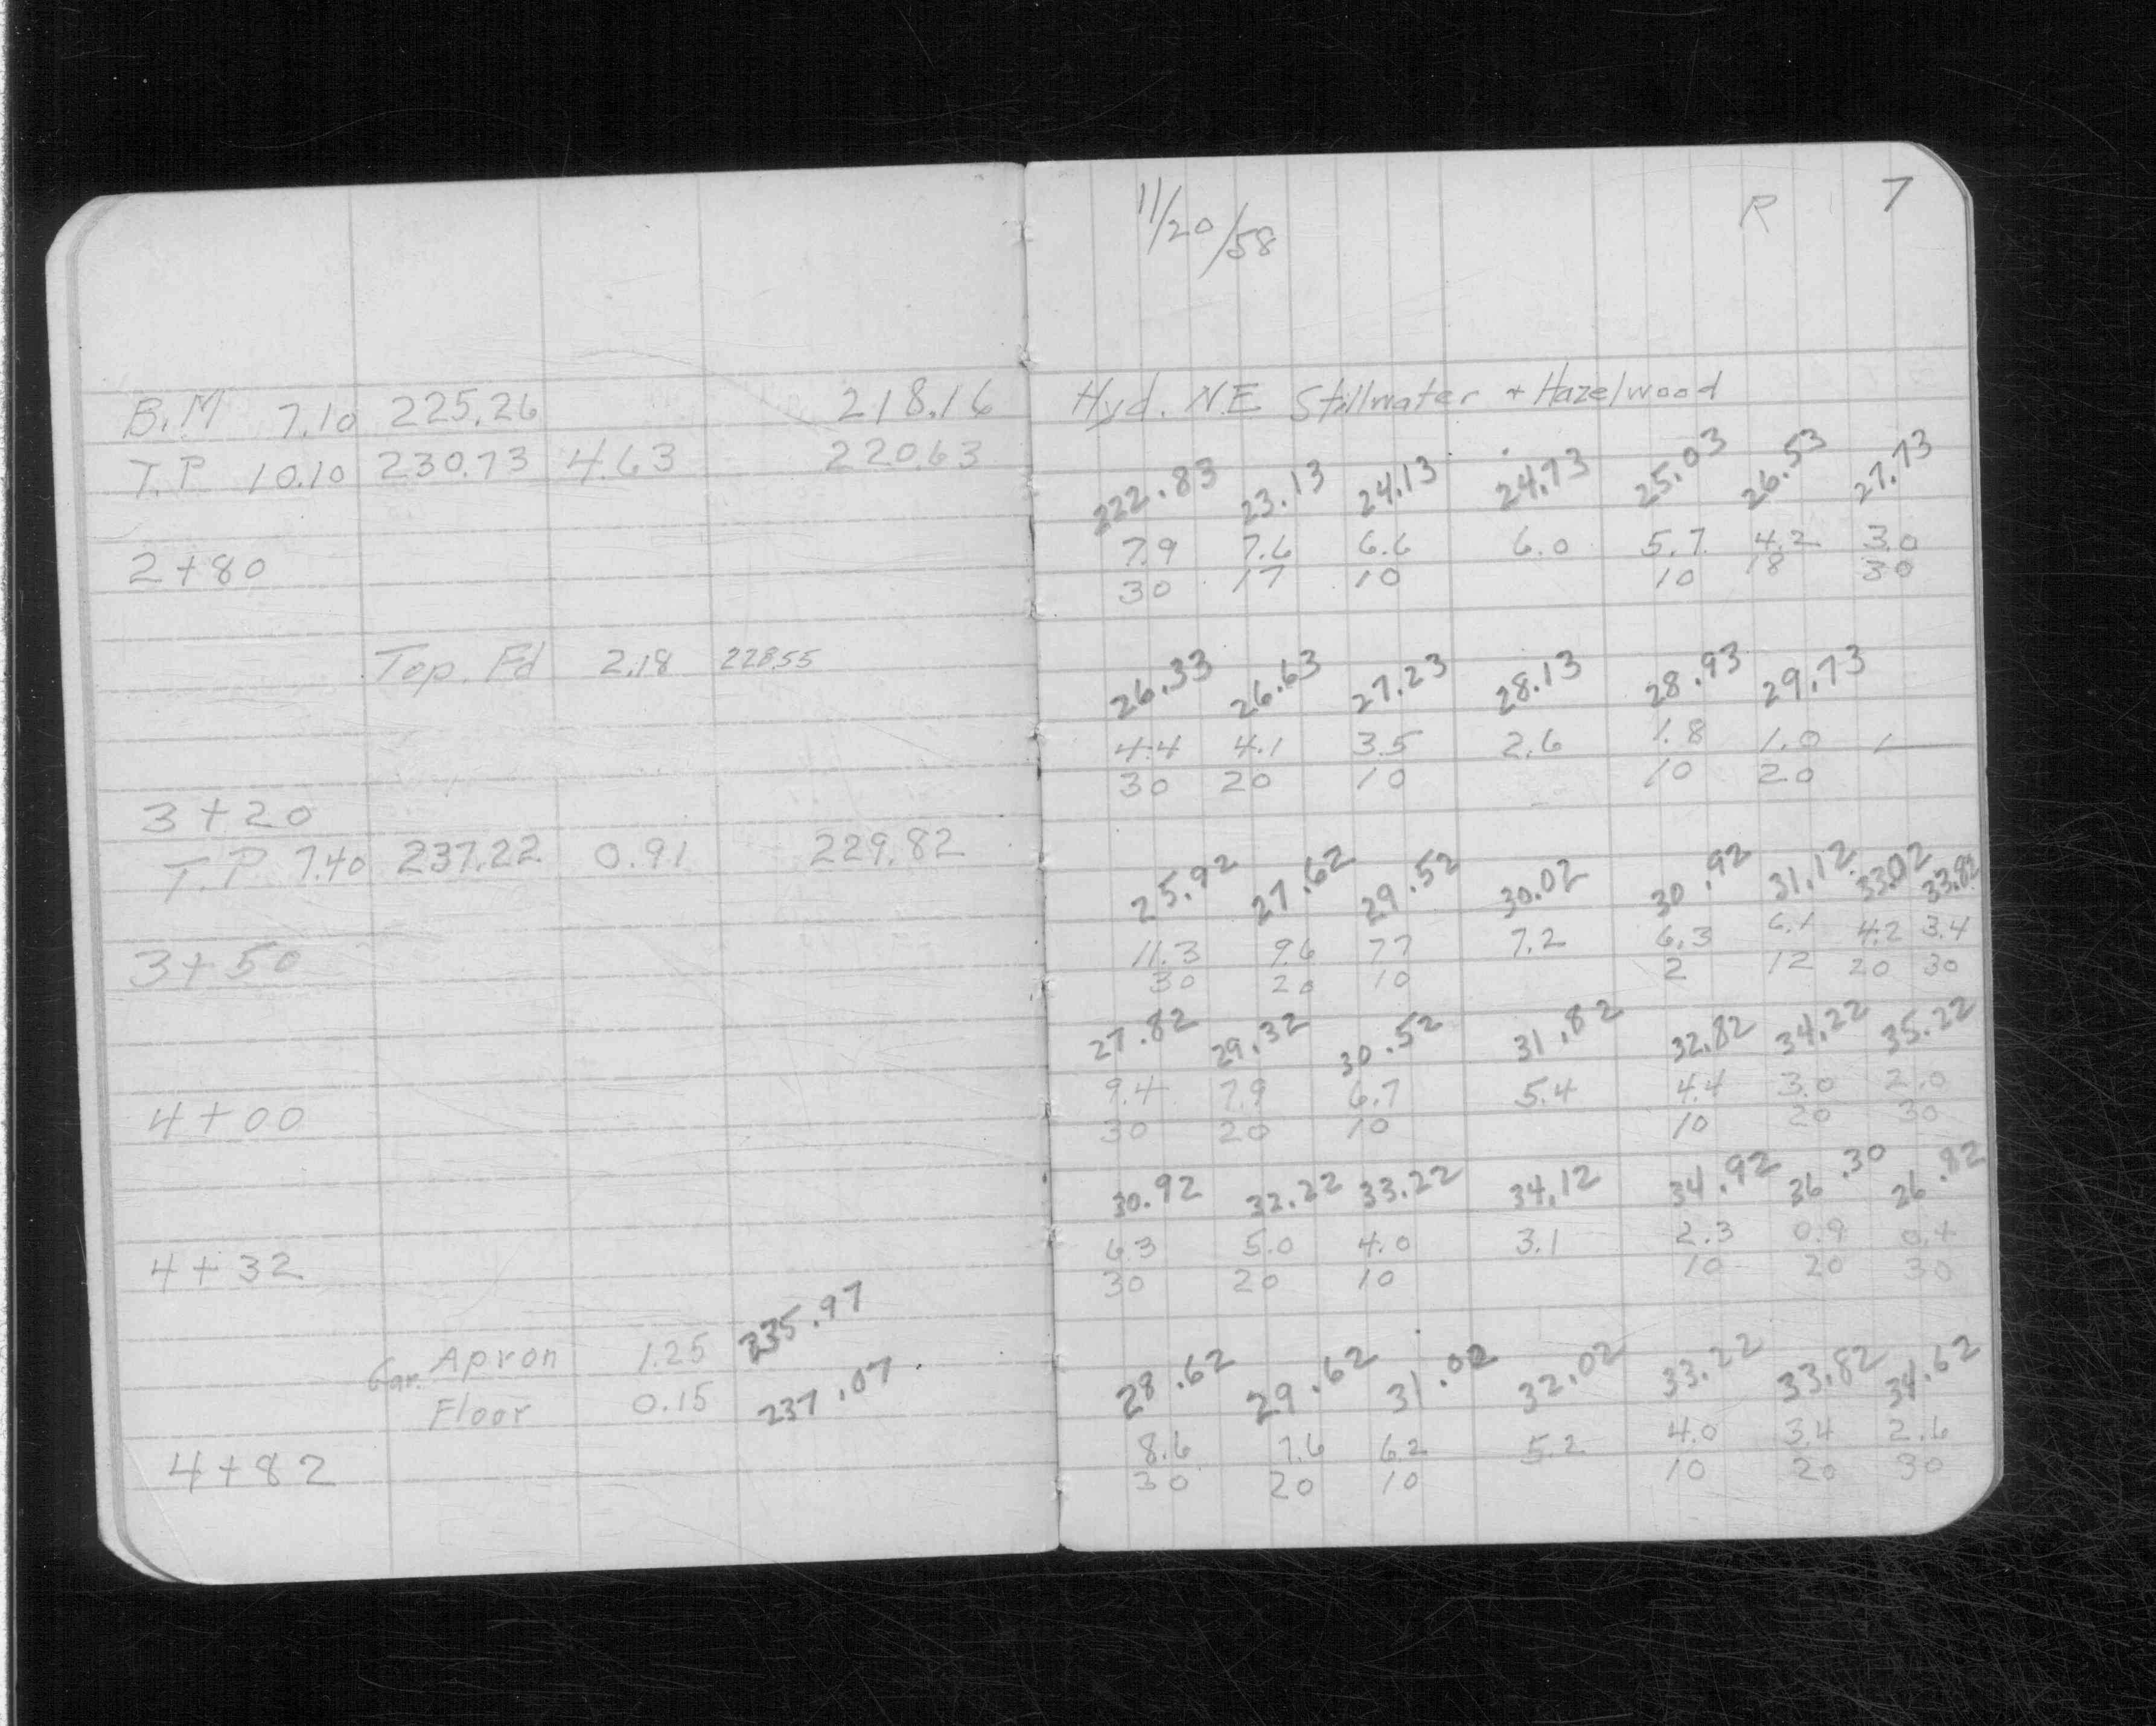 11/20/58 R 7
B.M 7.10 225.26 218.16 Hyd. N.E Stillwater + Hazelwood
T.P. 10.10 230.73 4.63 220.63
222.83 23.13 24.13 24.73 25.03 26.53 27.73
7.9 7.6 6.6 6.0 5.7 4.2 3.0
2+80 30 17 10 10 18 30
Top. Fd 2.18 228.55
26.33 26.63 27.23 28.13 28.93 29.73
4.4 4.1 3.5 2.6 1.8 1.0
30 20 10 10 20
3+20
T.P 7.40 237.22 0.91 229.82
25.92 27.62 29.52 30.02 30.92 31.12 33.02 33.82
11.3 9.6 7.7 7.2 6.3 6.1 4.2 3.4
3+50 30 20 10 2 12 20 30
27.82 29.32 30.52 31.82 32.82 34.22 35.22
9.4 7.9 6.7 5.4 4.4 3.0 2.0
4+00 30 20 10 10 20 30
30.92 32.22 33.22 34.12 34.92 36.30 26.82
6.3 5.0 4.0 3.1 2.3 0.9 0.4
4+32 30 20 10 10 20 30
Gar. Apron 1.25 235.97
Floor 0.15 237.07
28.62 29.62 31.02 32.02 33.22 33.82 34.62
8.6 7.6 6.2 5.2 4.0 3.4 2.6
4+82 30 20 10 10 20 30